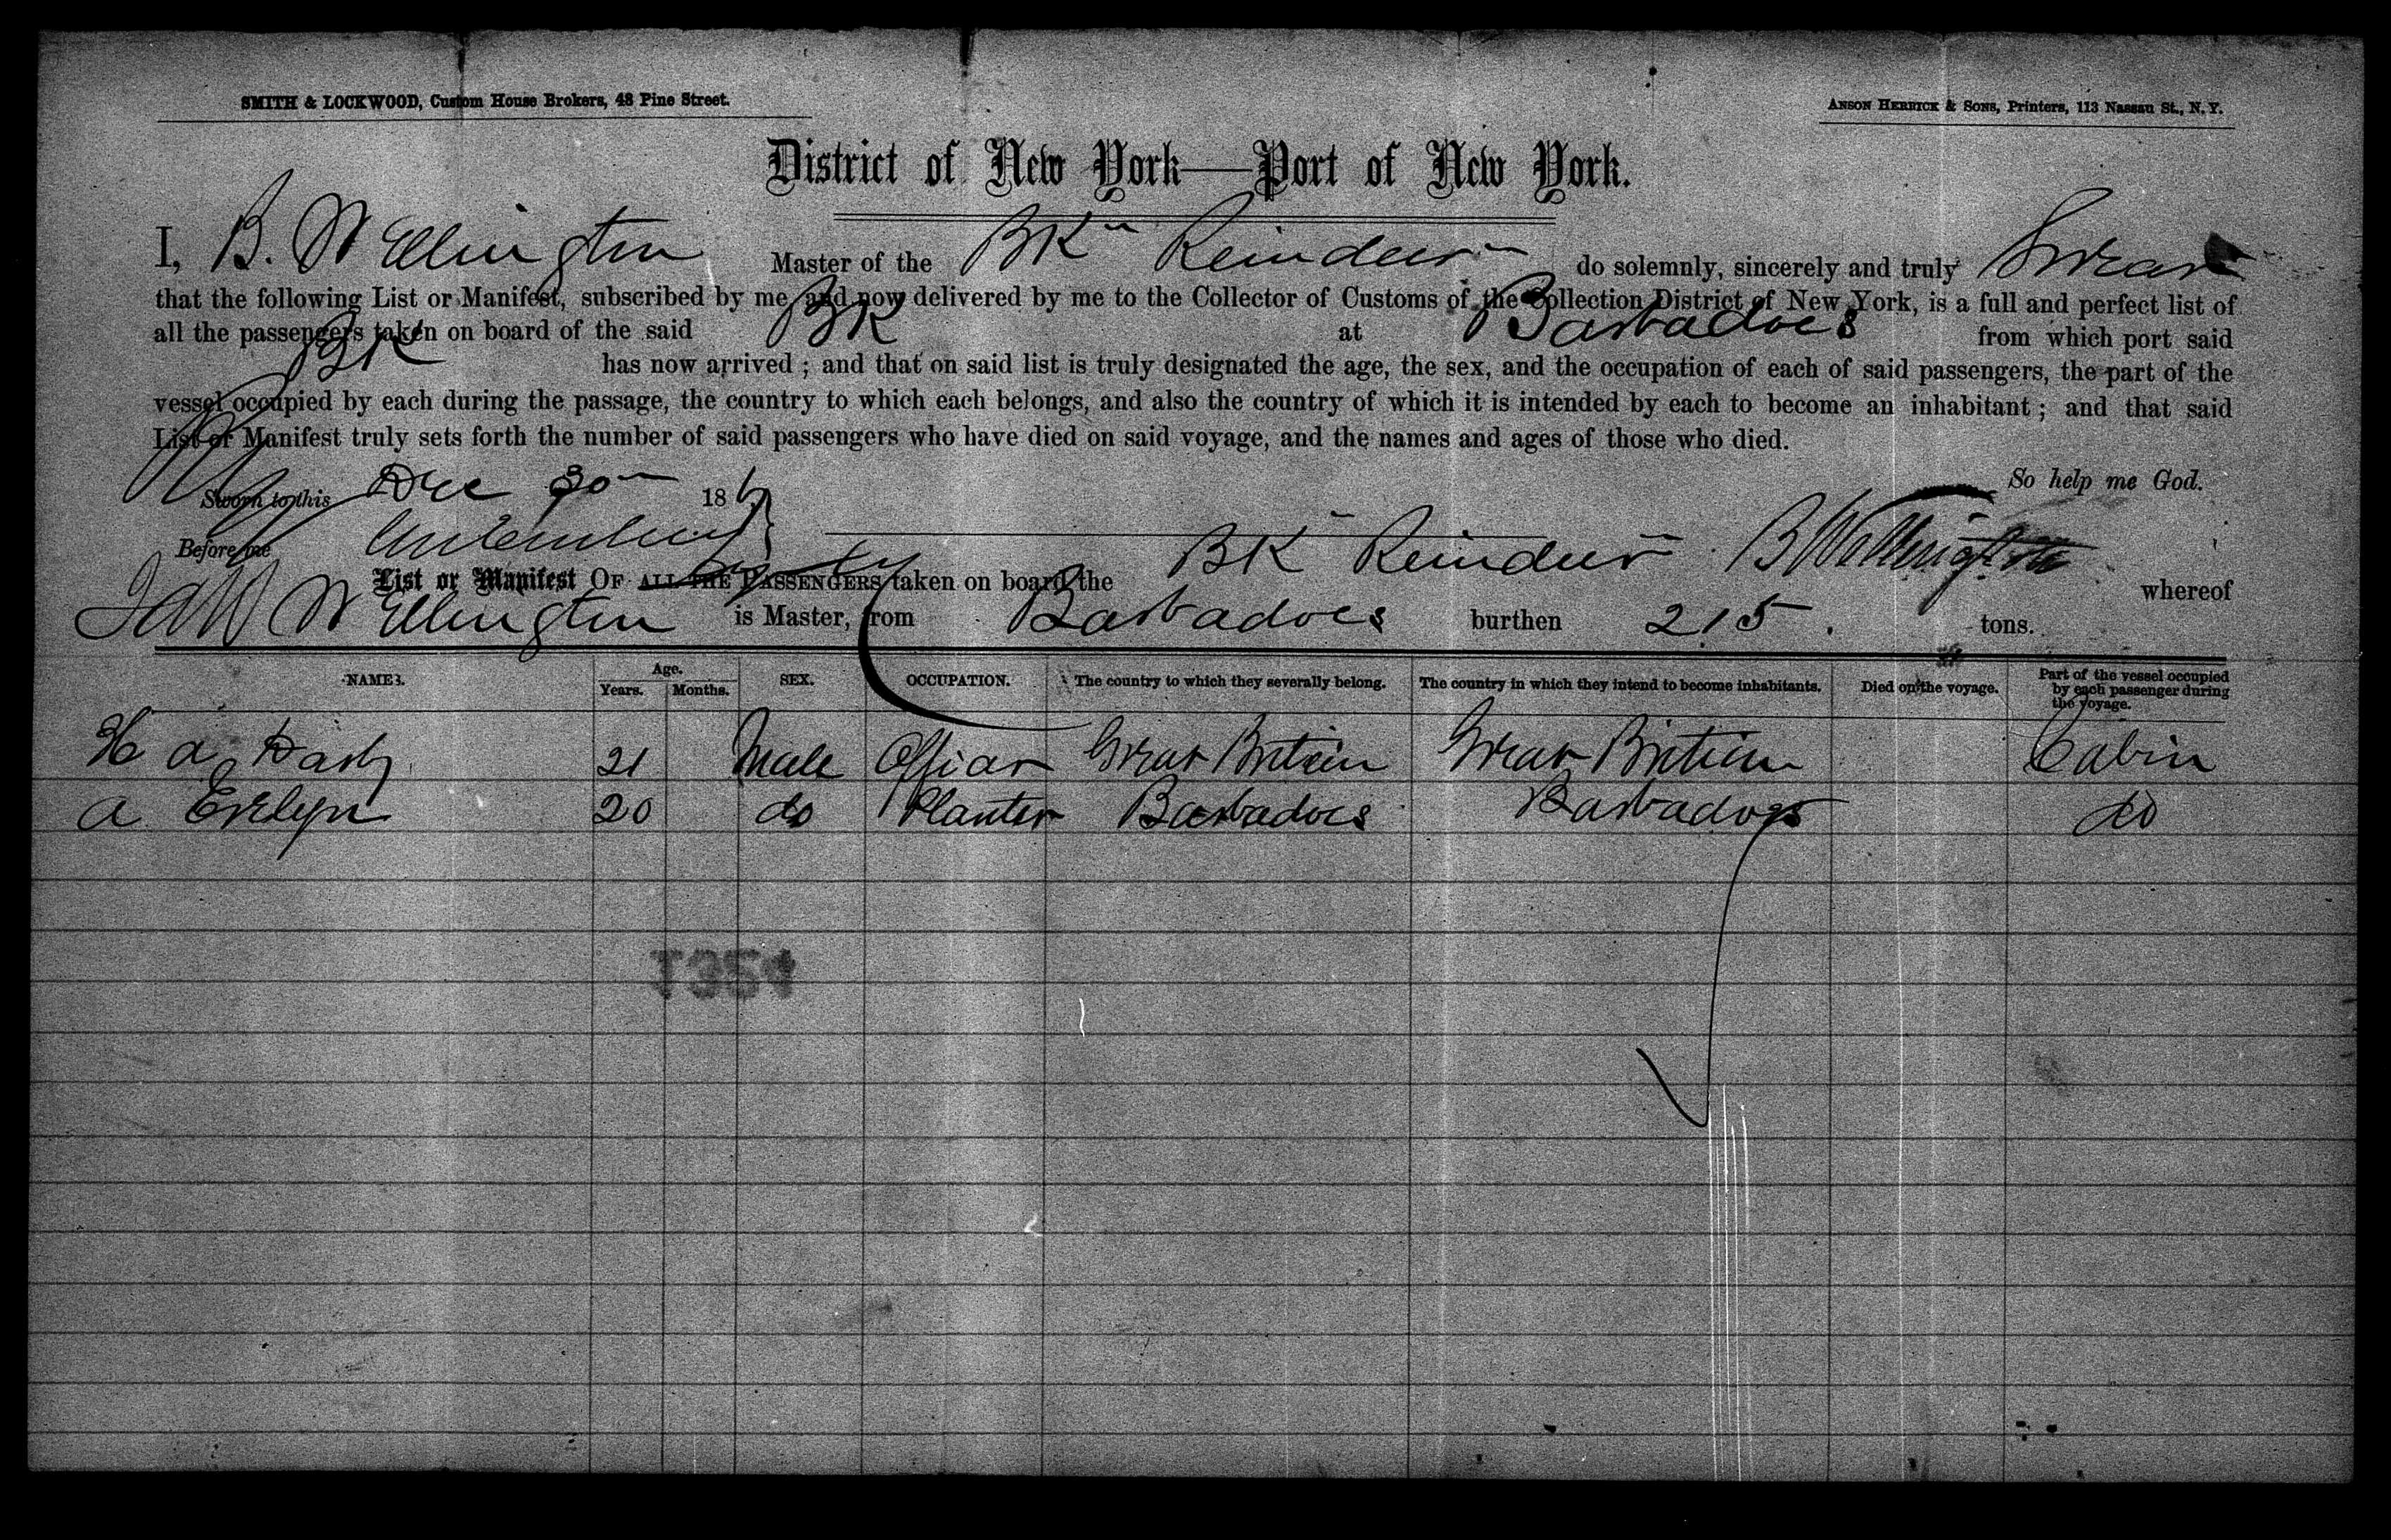 SMITH & LOCKWOOD, Custom House Brokers, 48 Pine Street.
ANSON HERRICK & SONS, Printers, 113 Nassau St., N. Y.
District of New York—Port of New York.
I, B. Wellington Master of the BKn Reindeer do solemnly, sincerely and truly Swear
that the following List or Manifest, subscribed by me and now delivered by me to the Collector of Customs of the Collection District of New York, is a full and perfect list of
all the passengers taken on board of the said BK at Barbadoes from which port said
BK has now arrived ; and that on said list is truly designated the age, the sex, and the occupation of each of said passengers, the part of the
vessel occupied by each during the passage, the country to which each belongs, and also the country of which it is intended by each to become an inhabitant ; and that said
List or Manifest truly sets forth the number of said passengers who have died on said voyage, and the names and ages of those who died.
So help me God.
Sworn to this Dec 30 186
Before me
B Wellington
List or Manifest OF ALL THE PASSENGERS taken on board the BK Reindeer whereof
Wellington is Master, from Barbadoes burthen 215 tons.
NAMES. Age. Years. Months. SEX. OCCUPATION. The country to which they severally belong. The country in which they intend to become inhabitants. Died on the voyage. Part of the vessel occupied by each passenger during the voyage.
H a 21 Male Officer Great Britain Great Britain Cabin
a Evelyn 20 do Planter Barbadoes Barbadoes do